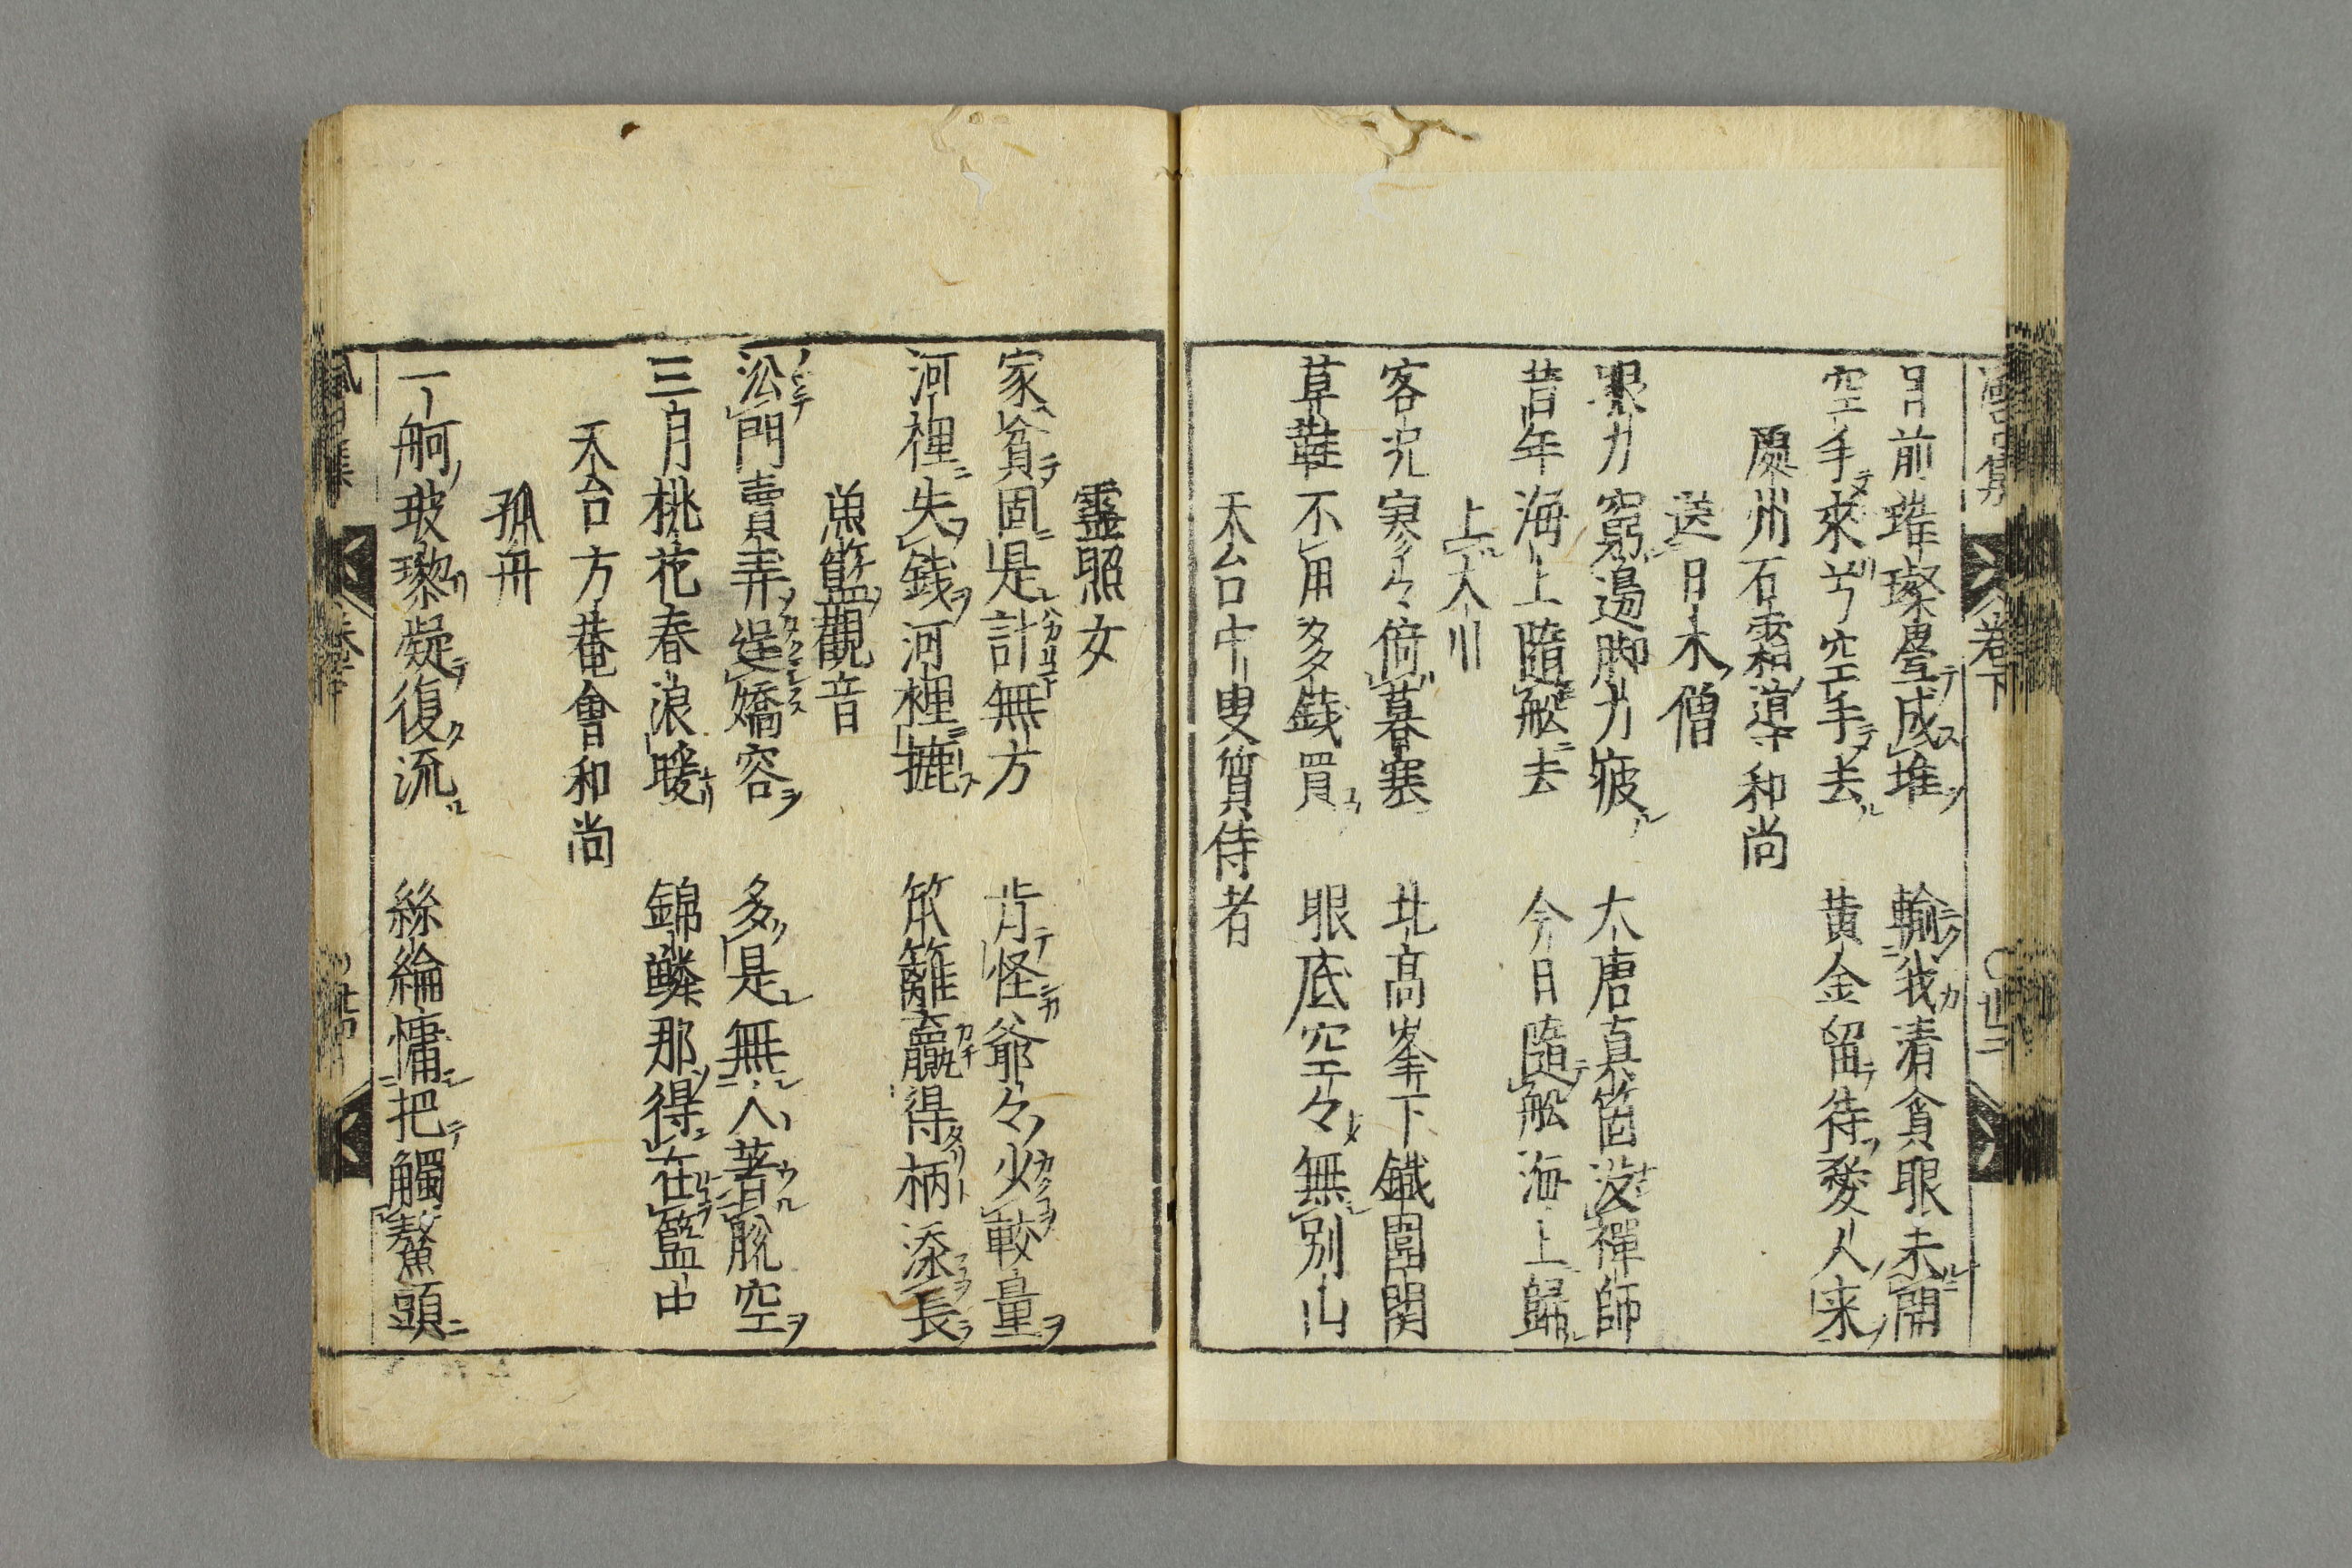 目前堆璨疊成堆　輸我清貧眼未開
空手來兮空手去　黄金留待愛人来
慶州石霜導和尚
送日本僧
眼力窮邊脚力疲　大唐真箇沒禪師
昔年海上隨舩去　今日隨舩海上歸
上人川
客况寒多々倚暮寒　北髙峯下鐡圍関
草鞋不用多錢買　眼底空々無別山
天台中叟質侍者
靈照女
家貧固是計無方　肯怪爺々火較量
河裡失錢河裡摝　笊籬贏得柄添長
魚籃觀音
㳂門賣弄逞嬌容　多是無人著眼空
三月桃花春浪暖　錦鱗那得在籃中
天台方菴會和尚
孤舟
一舸玻瓈凝復流　絲綸慵把觸鰲頭